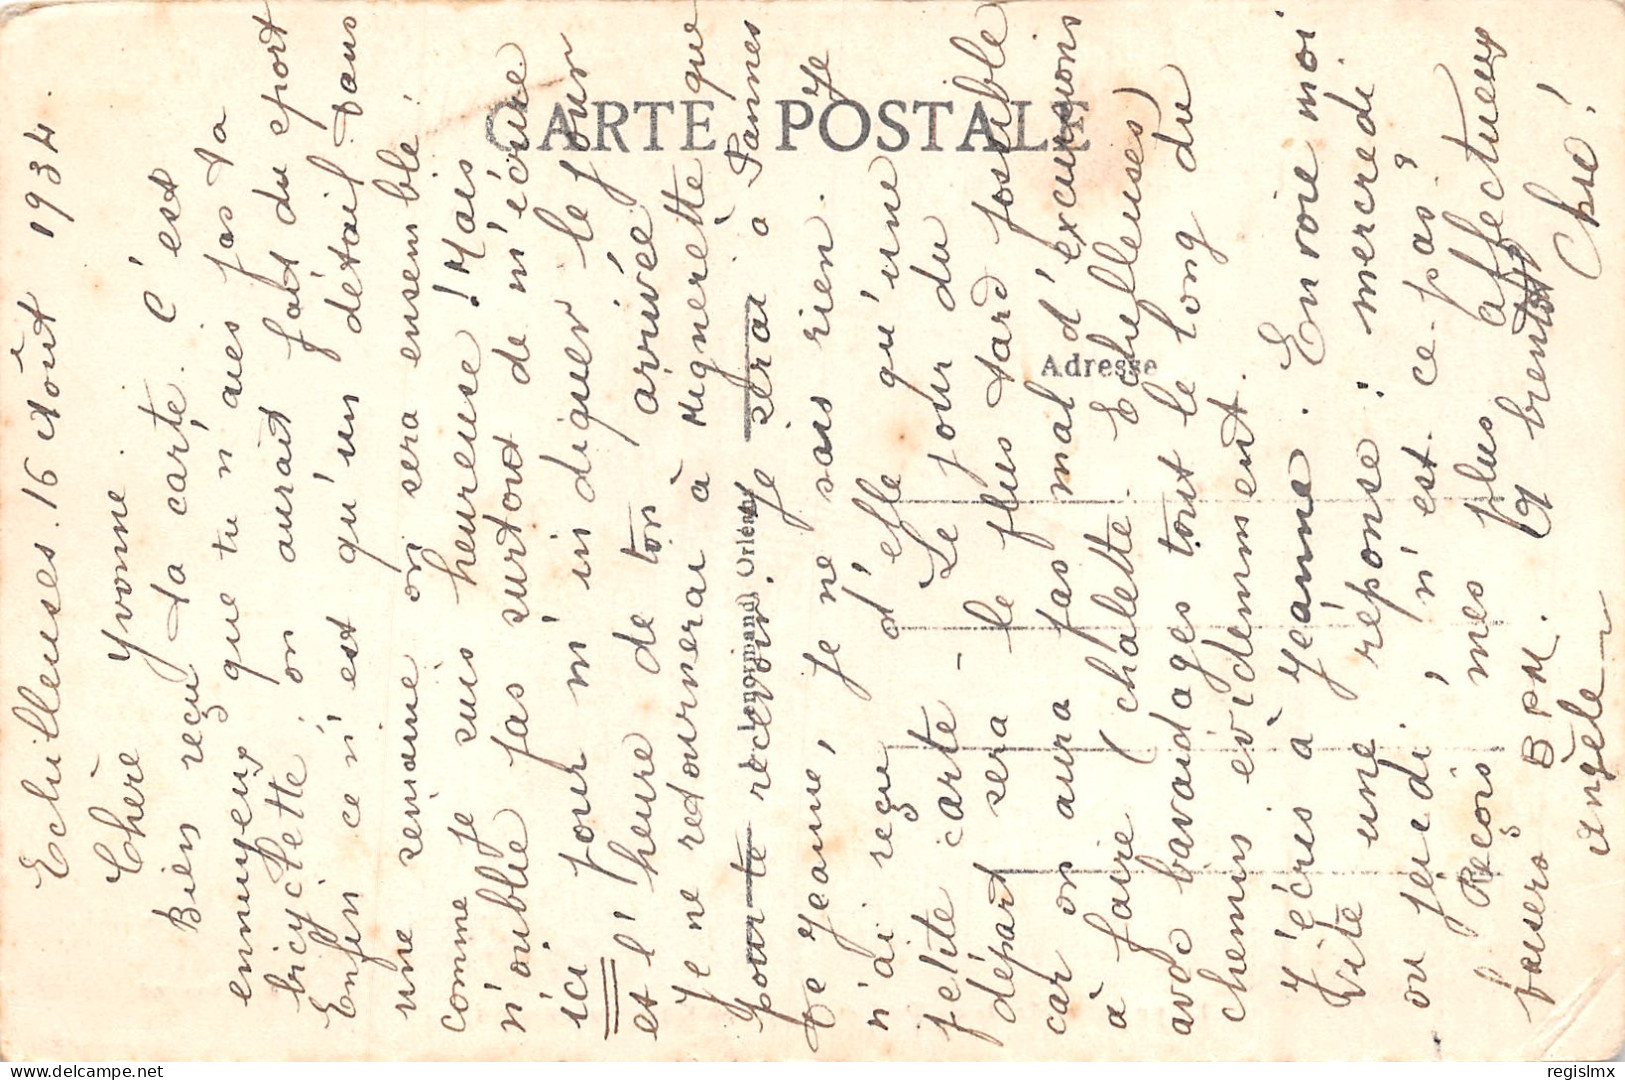 CARTE POSTALE
Adresse
Lenormand, Orléans
Echilleuses. 16 Août 1934
Chère Yvonne.
Bien reçu ta carte. C'est
ennuyeux que tu n'aies pas ta
bicyclette, on aurait fait du sport
Enfin ce n'est qu'un détail. Dans
une semaine on sera ensemble.
comme je suis heureuse! Mais
n'oublie pas surtout de m'écrire
ici pour m'indiquer le jour
et l'heure de ton arrivée.
Je ne retournerai à Mignerette que
pour te recevoir. Je serai à Pannes
De Jeanne, je ne sais rien. Je
n'ai reçu d'elle qu'une
petite carte - Le jour du
départ sera le plus tard possible
car on aura pas mal d'excursions
à faire (chalette Echilleuses)
avec bavardages tout le long du
chemin évidemment.
J'écris à Jeanne. Envoie moi
vite une réponse : mercredi
ou jeudi, n'est-ce-pas?
Reçois mes plus affectueux
baisers B P M. A bientôt
Angèle Chue!
regislmx